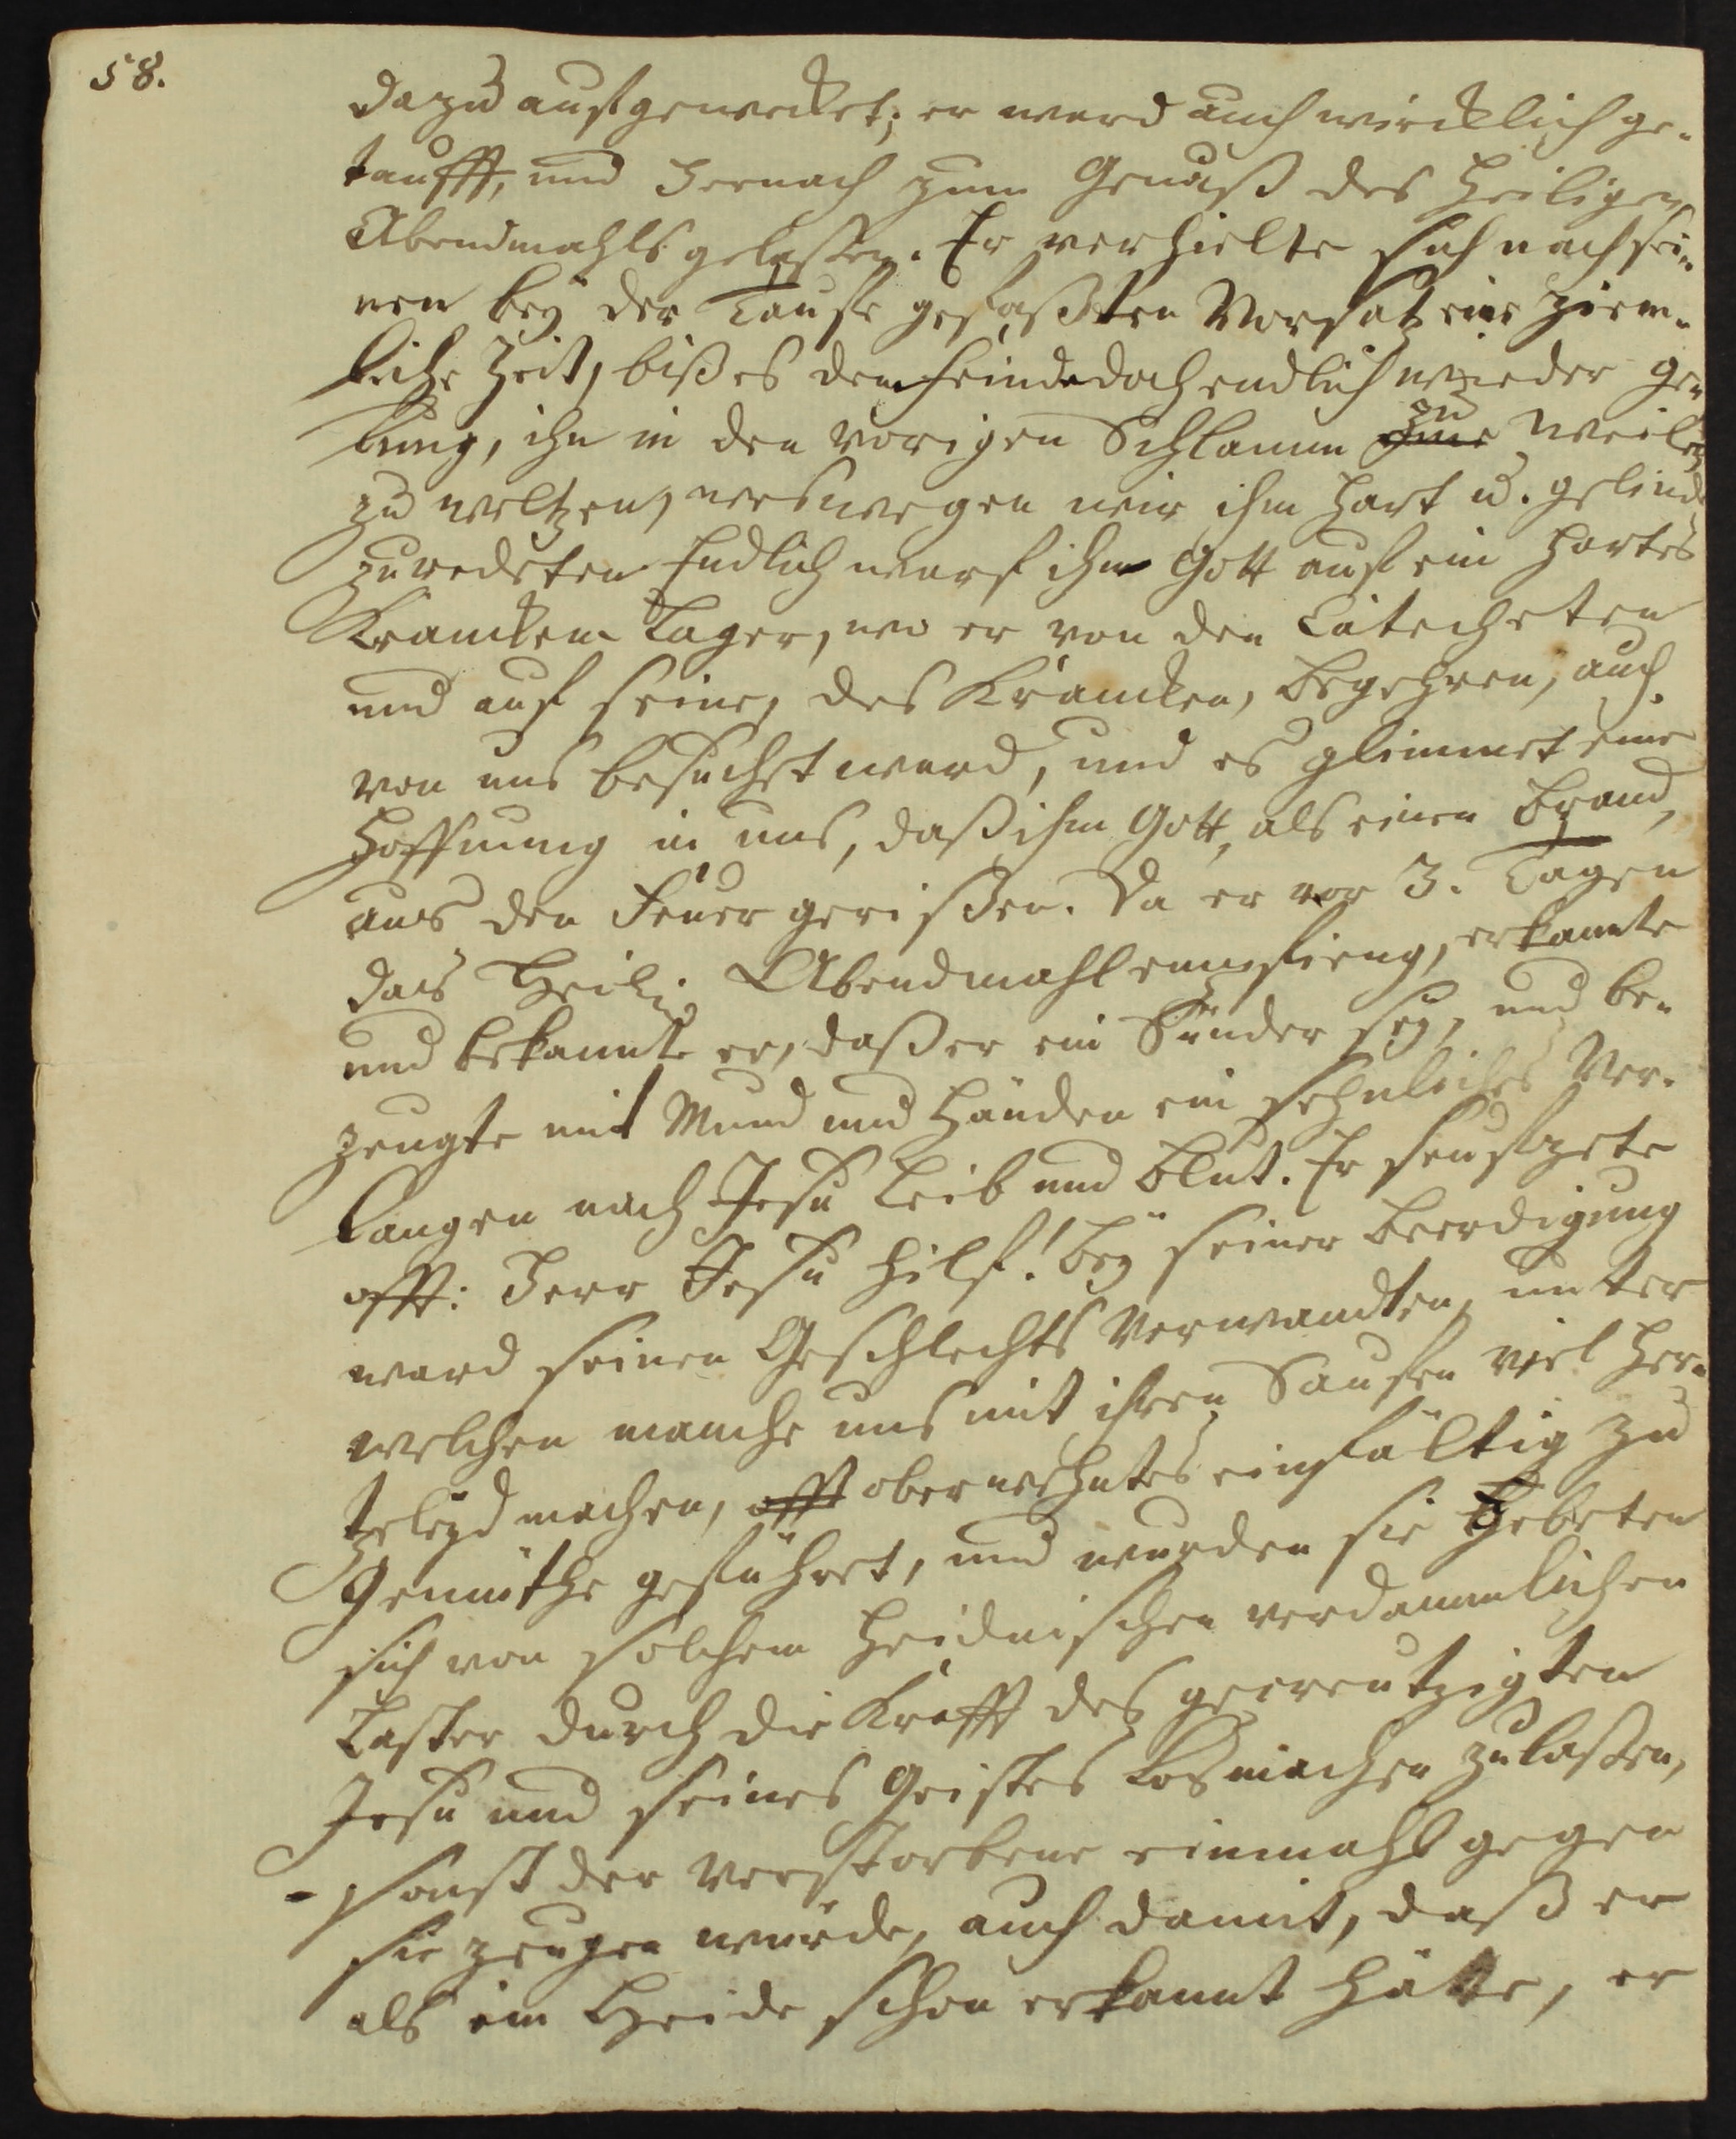 58.
dazu aufgewecket; er ward auch wircklich ge-
taufft, und Hernach zum Genuß des Heiligen
Abendmahls gelaßen. Er verhielte sich nach sei-
nen bey der Tauffe gefaßten Vorsatz eine ziem-
liche Zeit, biß es dem Feinde doch endlich wieder ge-
lung, ihn in den vorigen Schlamm zu weilen
zu weltzen, weswegen wir ihm hart u. gelind
zuredeten. Endlich warf ihn Gott auf ein hartes
Krancken-Lager, wo er von den Catecheten
und auf seine, des Krancken, begehren, auch
von uns besuchet ward, und es glimmet eine
Hoffnung in uns, daß ihn Gott, als einen Brand,
aus den Feuer gerißen. Da er vor 3. Tagen
das Heilig Abendmahl empfieng, erkannte
und bekannte er, daß er ein Sünder sey, und be-
zeugte mit Mund und Händen ein sehnliches Ver-
langen nach Jesu Leib und Blut. Er seufzete
offt: Herr Jesu hilf! Bey seiner Beerdigung
ward seinen Geschlechts Verwandten, unter
welchen manche uns mit ihren Saufen viel Her-
tzeleyd machen, offt oberwehntes einfältig zu
Gemüthe geführet, und wurden sie gebeten
sich von solchem Heidnischen verdammlichen
Laster durch die Krafft des gecreutzigten
Jesu und seines Geistes losmachen zulaßen,
sonst der Verstorbene einmahl gegen
sie zeugen würde, auch damit, daß er
als ein Heide schon erkannt hätte, er